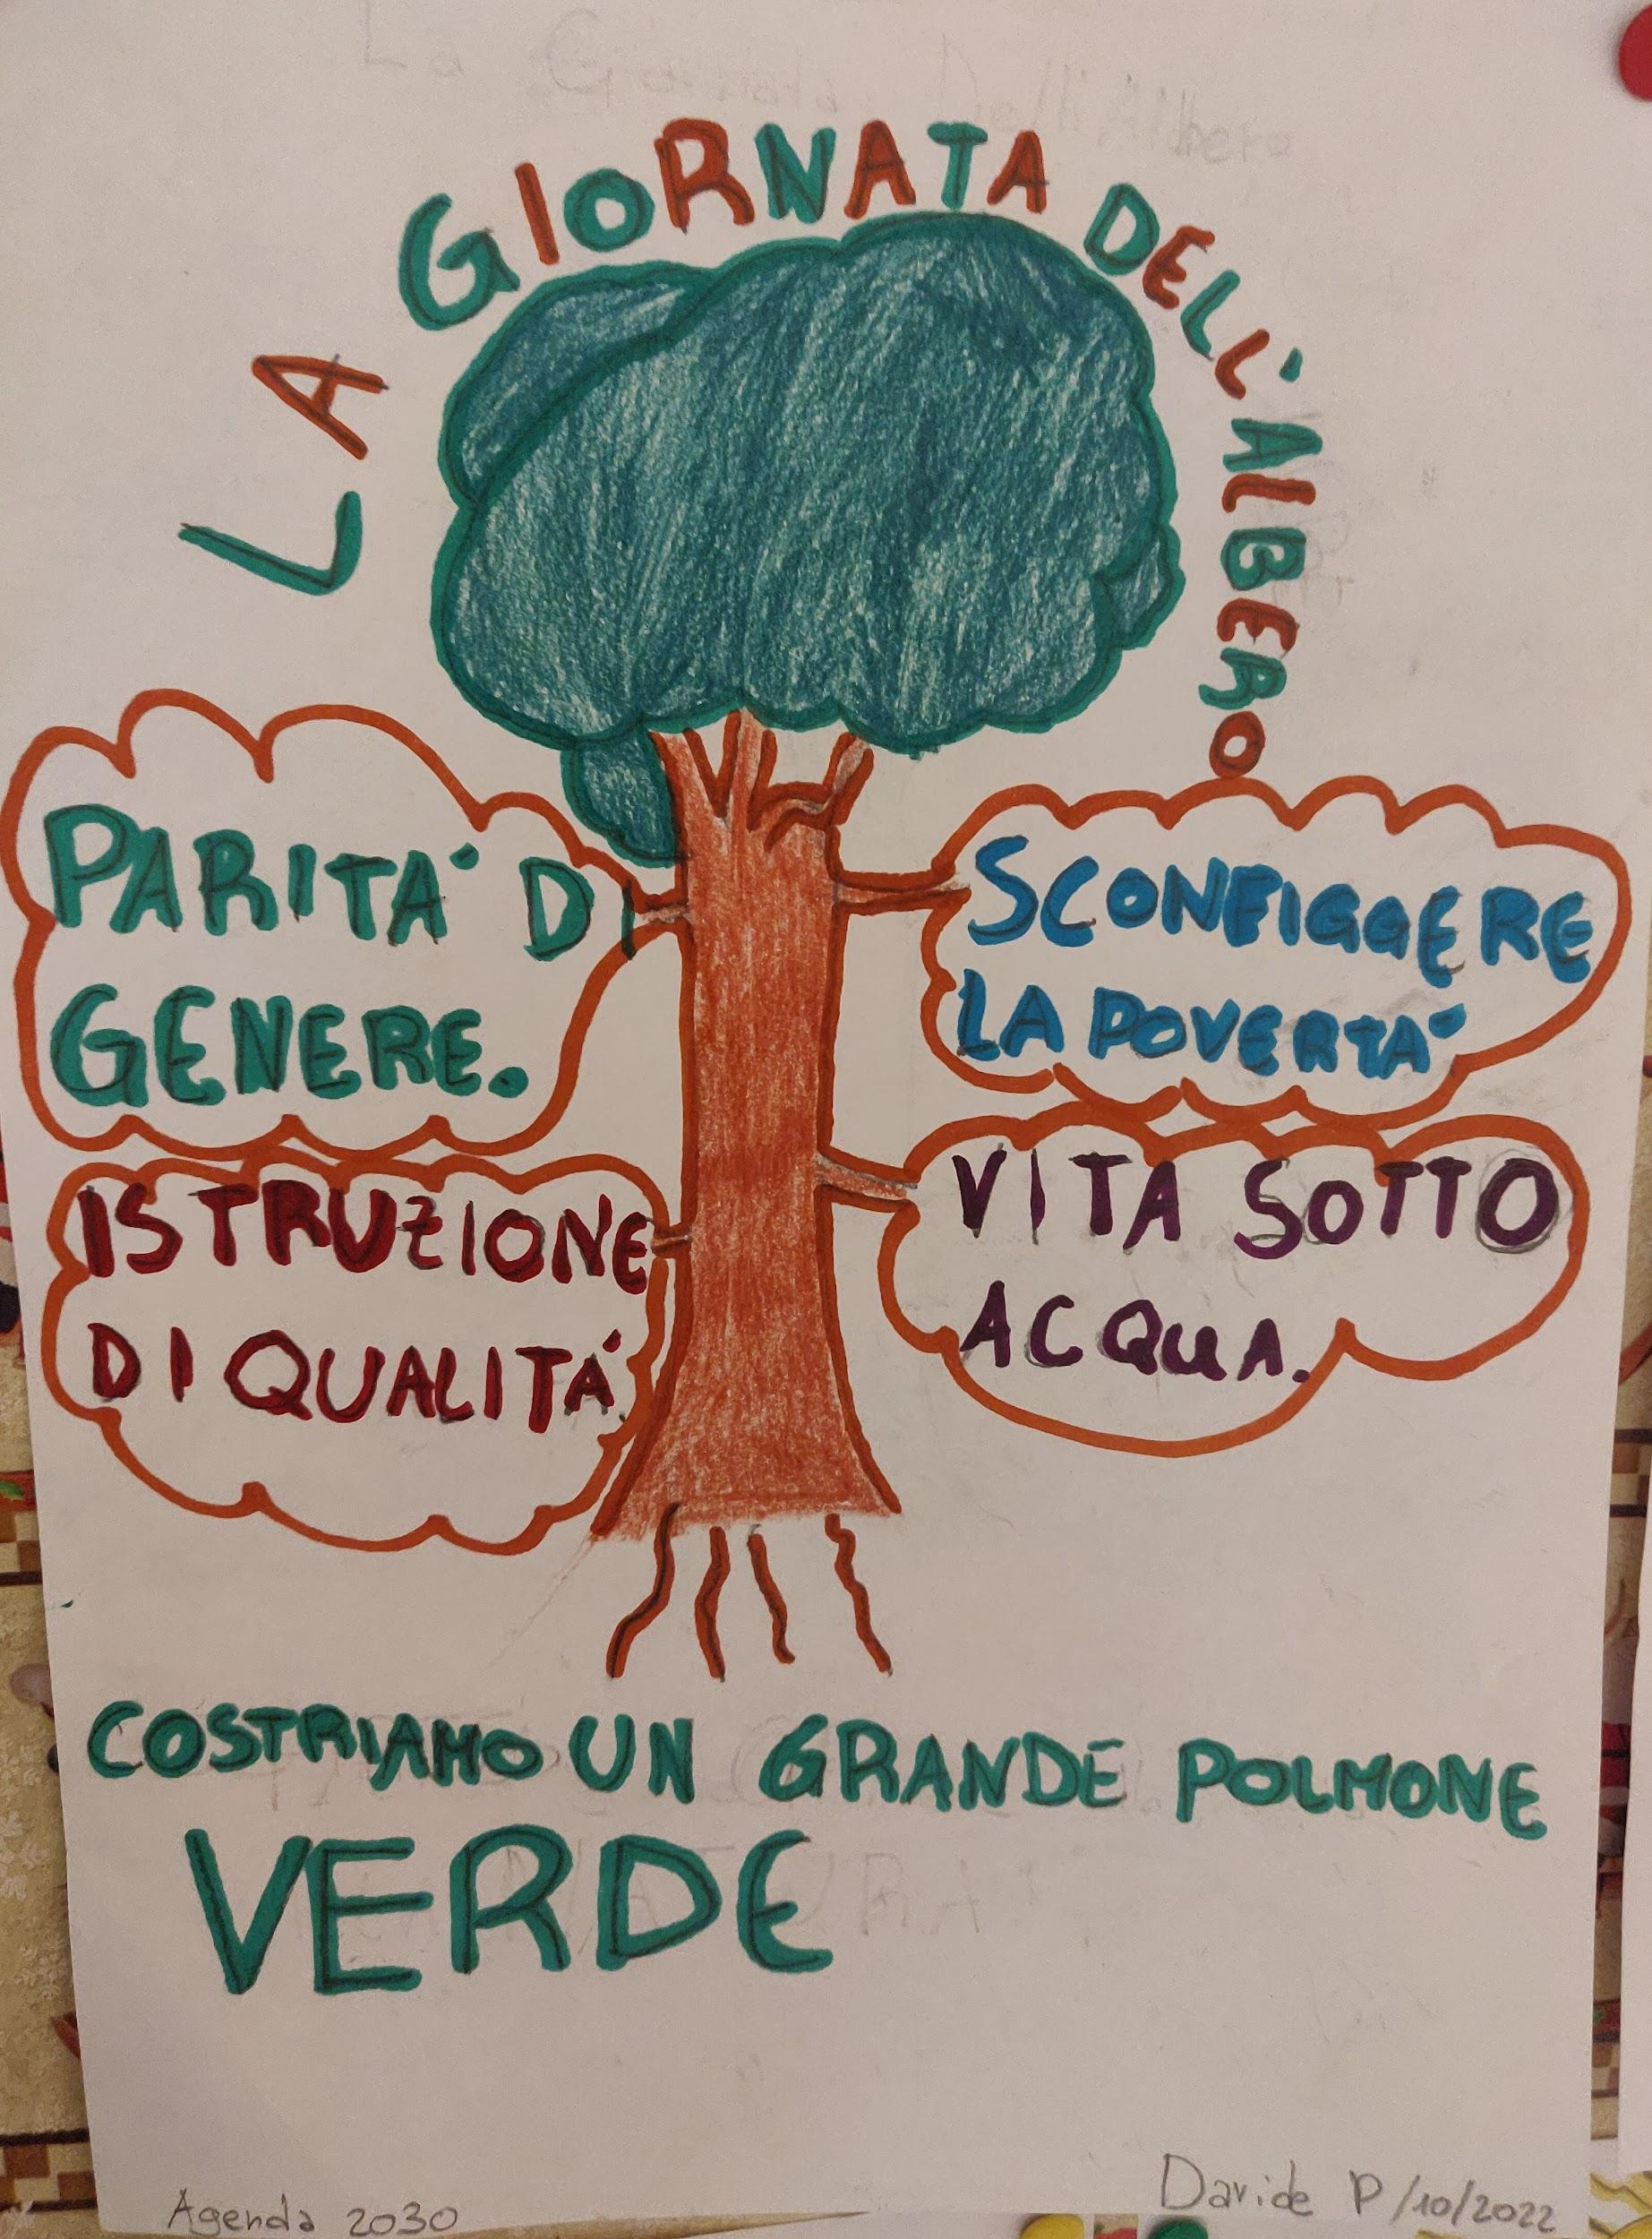 La Giornata Dell'Albero
LA GIORNATA DELL'ALBERO
PARITA' DI
GENERE.
SCONFIGGERE
LA POVERTA'
ISTRUZIONE
DI QUALITÁ.
VITA SOTTO
ACQUA.
COSTRIAMO UN GRANDE POLMONE
VERDE
Agenda 2030
Davide P/10/2022